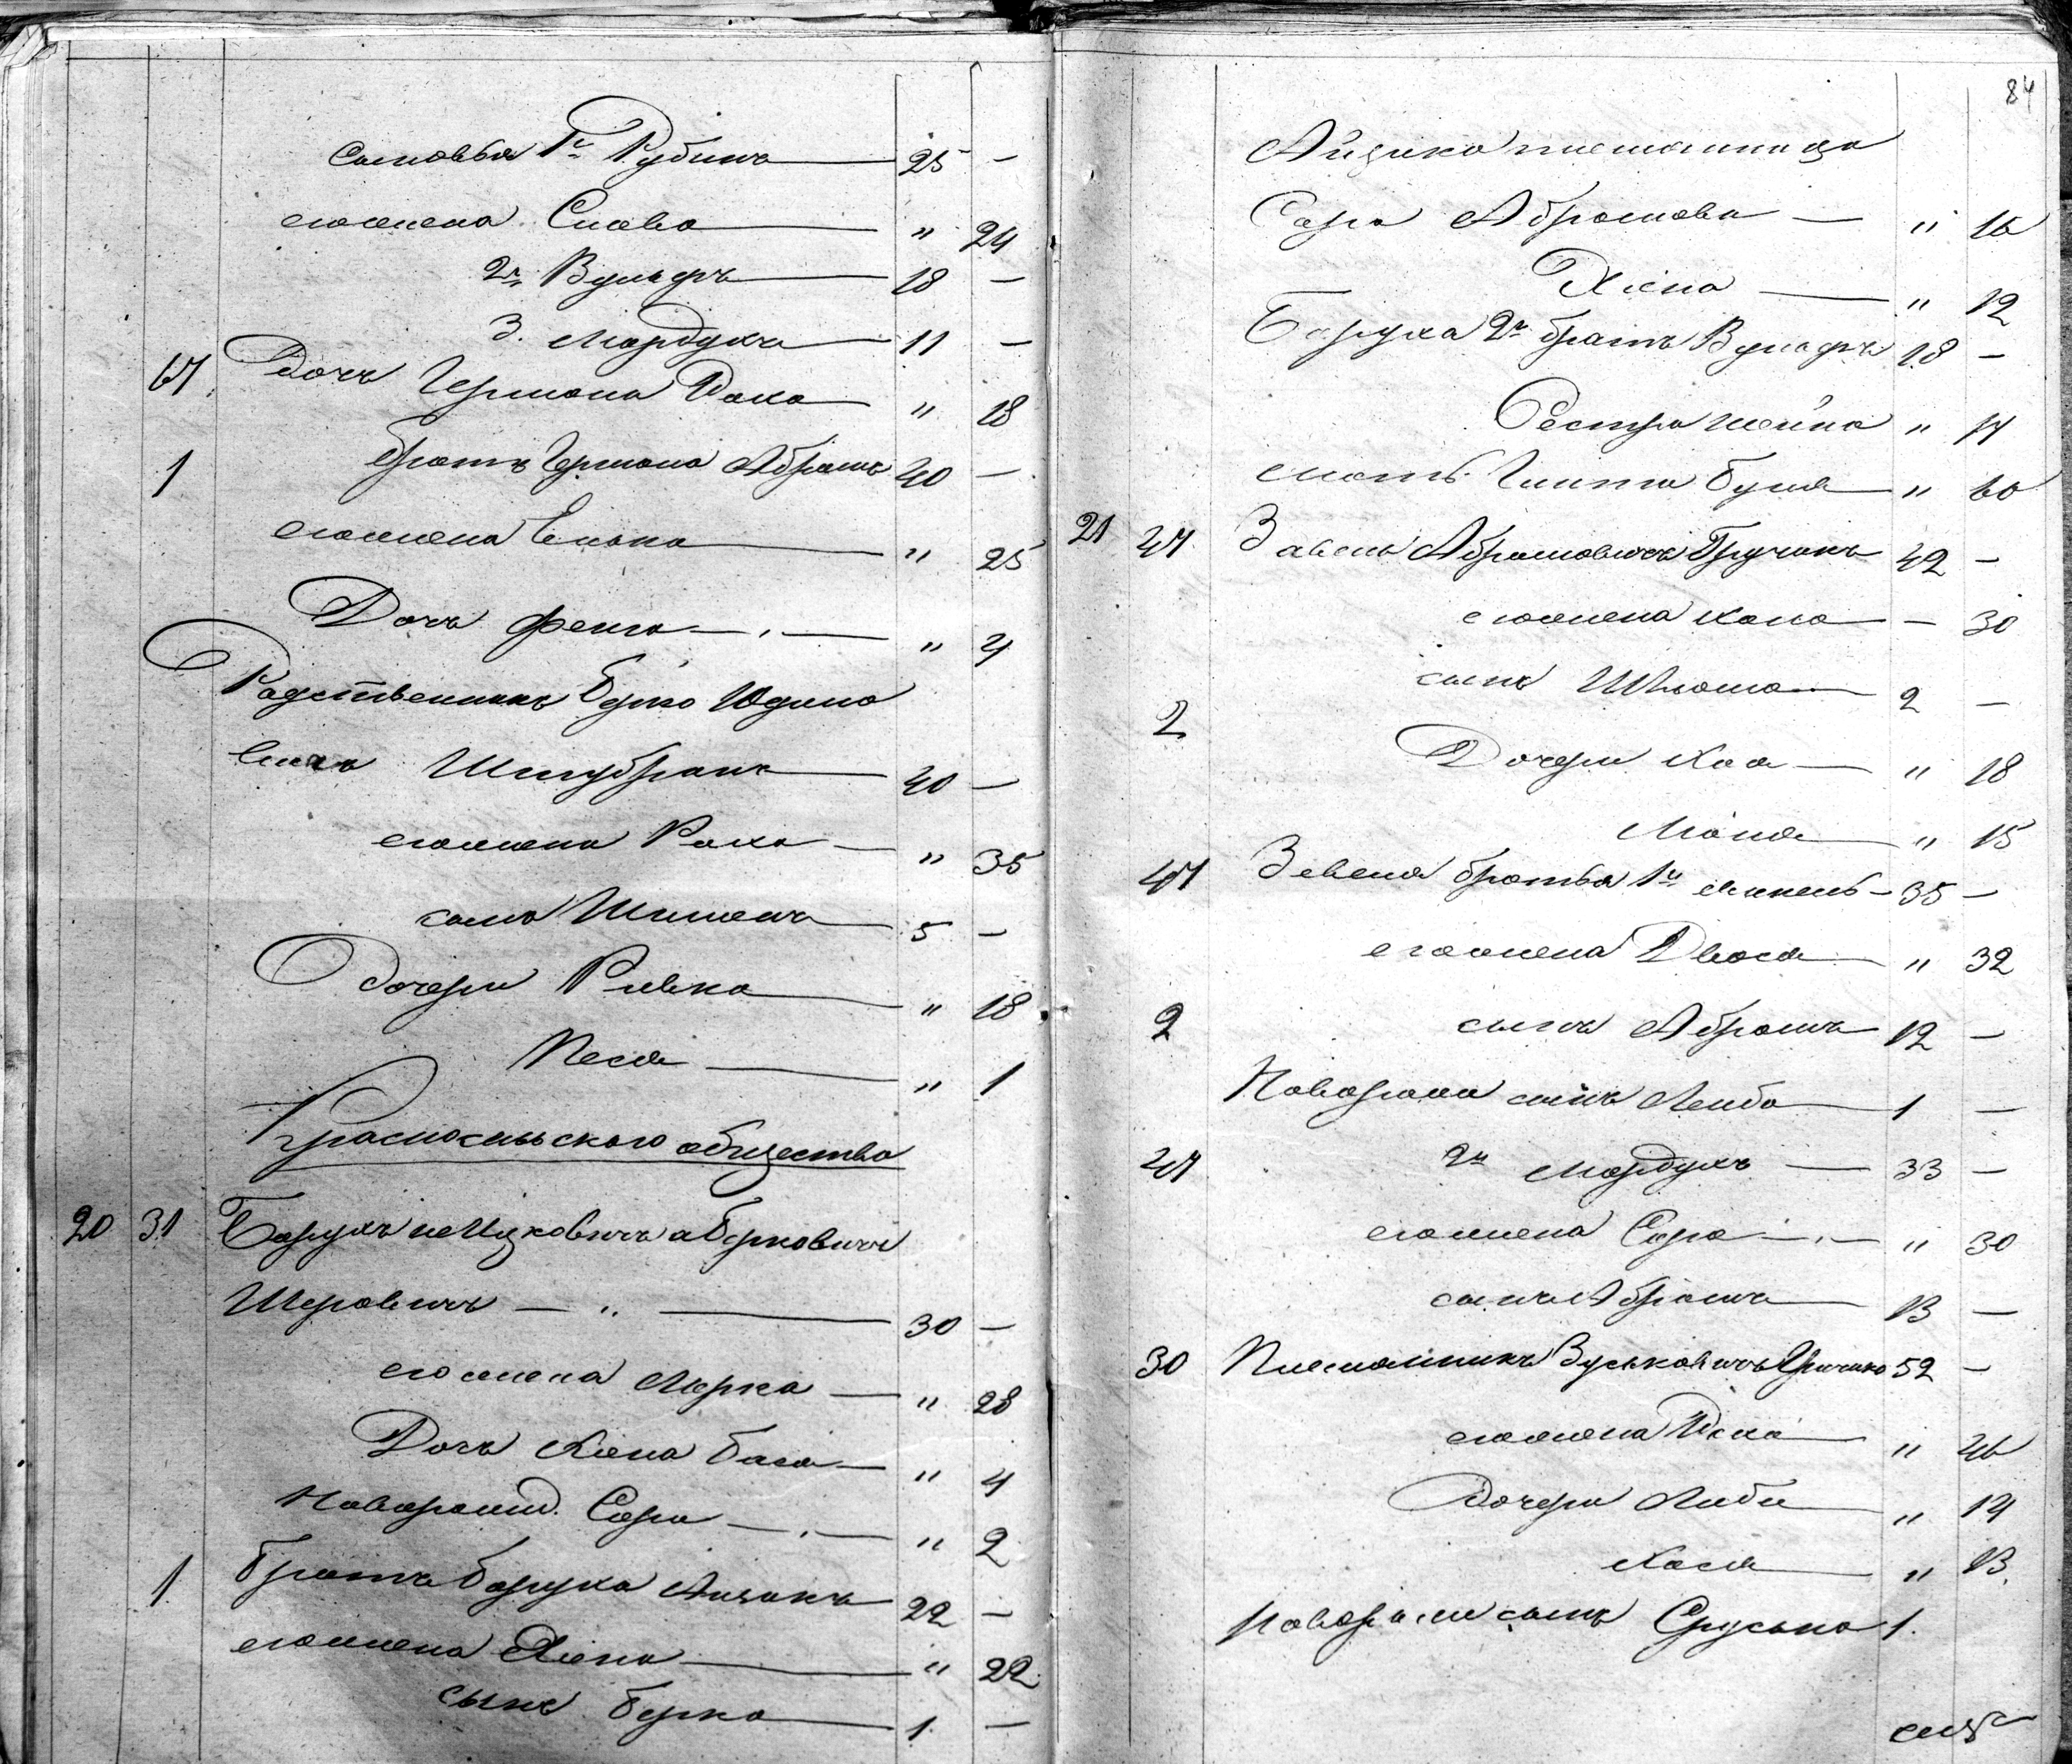 сыновья 1й Рубинъ — 25 —
его жена Слава — " 24
2й Вульфъ — 18 —
3. Мордухъ — 11 —
67. Дочь Германа Раха — " 18
1 братъ Германа Абрамъ 40 —
его жена Енька — " 25
Дочь Фейга — " 4
Родственникъ Берко Юдино
вичъ Штубранъ — 40 —
его жена Раха — " 35
сынъ Шименъ — 5 —
дочери Ривка — " 18
Песя — " 1
Красносельского общества
20 31 Барухъ ицковичъ аберковичъ
Шеровичъ — " — 30 —
его жена Мерка — " 28
Дочь Хана бася — " 4
Поворожд. Сара — " 2
1. братъ баруха Аизикъ 22 —
его жена Хіена — " 22
сынъ берко — 1. —
84
Айзика племянница
Сара Абрамова — " 16
Хіена — " 12
Баруха 2й братъ Вульфъ 18 —
Сестра шейна " 14
мать Гинта буня — " 60
21 47 Завель Абрамовичъ Гручанъ 42 —
его жена хана — 30
сынъ Шлема — 2 —
2 Дочери Хая — " 18
Маня — " 15
47 Завеля братья 1й минель — 35 —
его жена Двося — " 32
2 сынъ Абрамъ 12 —
Поворожд сынъ Лейба — 1 —
47 2й Мордухъ — 33 —
его жена Сара — " 30
сынъ Абрамъ — 13 —
30 Племянникъ Вуськовичъ 52 —
его жена Иска — " 46
дочери Либа — " 14
Хася — " 13.
Поворожд сынъ Сруська 1.